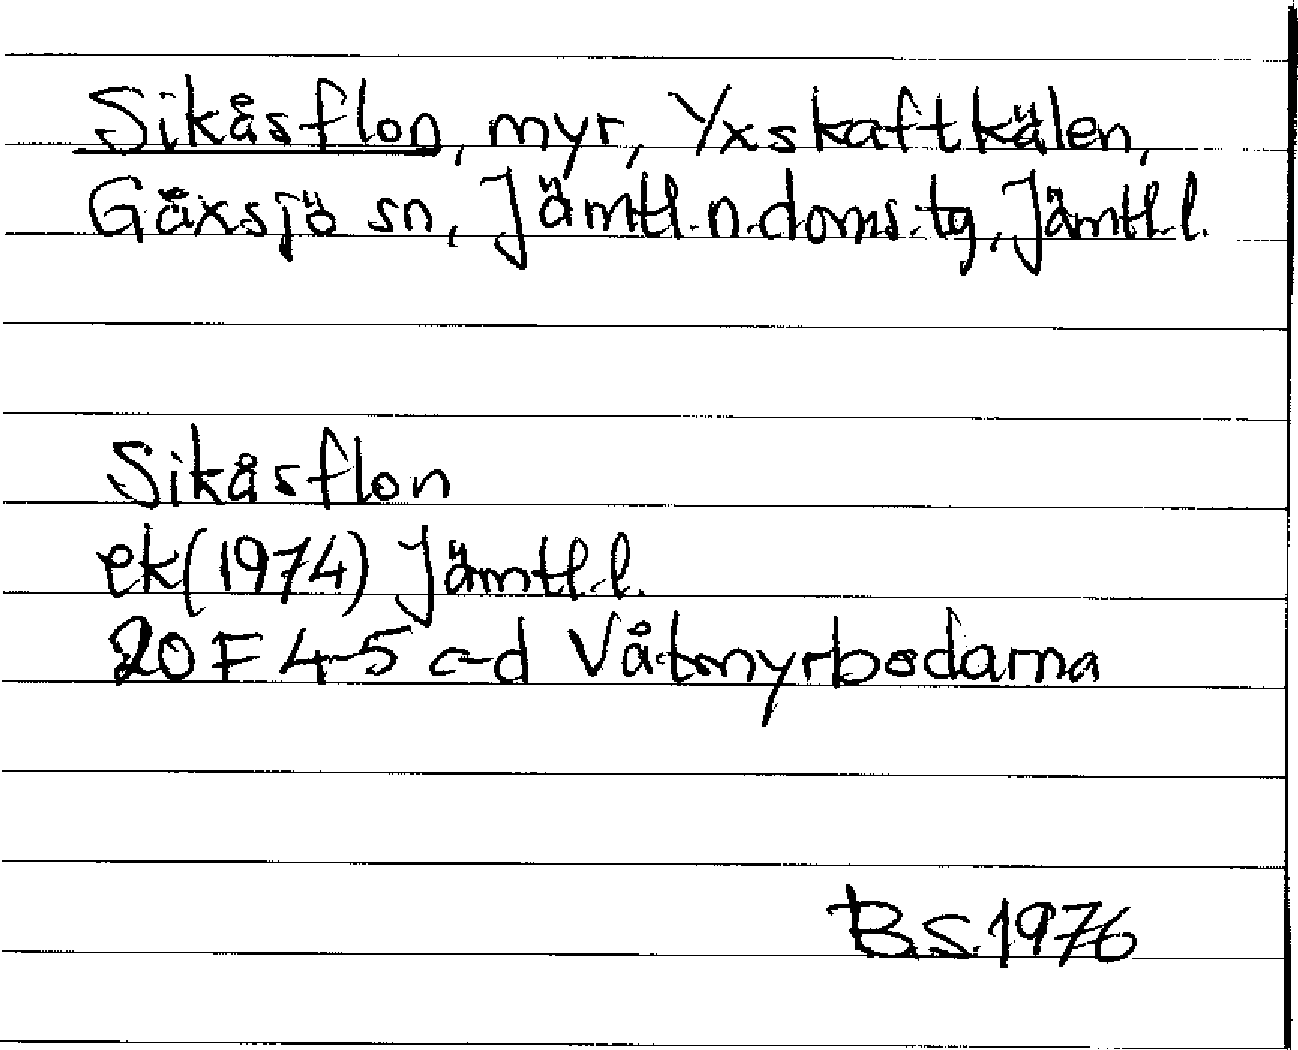 Sikåsflon, myr, Yxskaftkälen,
Gåxsjö sn, Jämtl.n.doms.tg, Jämtl.l.
Sikåsflon
ek(1974) Jämtl.l.
20F 4-5 c-d Våtmyrbodarna
B.S.1976